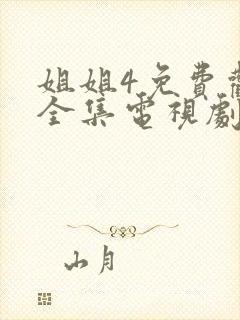 姐姐4免費
全集電視劇
山月